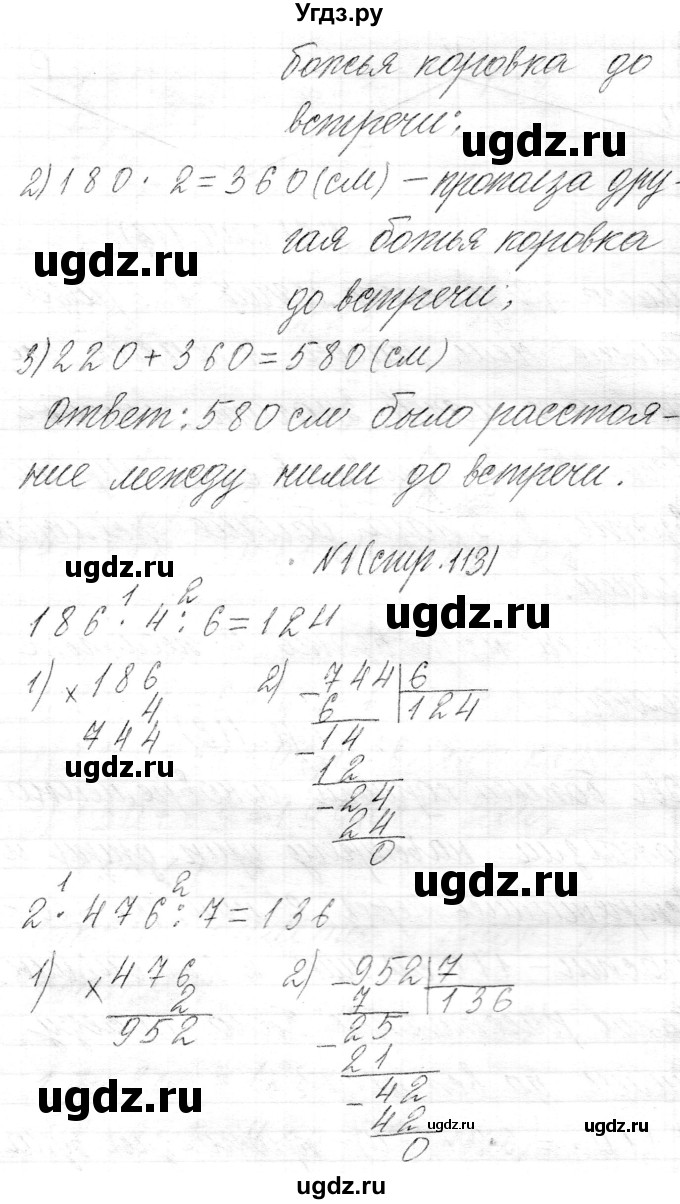 Угдз.ру
божья коровка до
встречи;
ugdz.ru
2) 180 · 2 = 360 (см) – проползла дру-
гая божья коровка
ugdz.ru
до встречи;
3) 220 + 360 = 580 (см)
Ответ: 580 см было расстоя-
ние между ними до встречи.
№1 (стр. 113)
ugdz.ru
1 2
ugdz.ru
186 · 4 : 6 = 124
1) × 186 2) – 744 | 6
4 6 124
744 – 14
ugdz.ru
12
– 24
24
0
ugdz.ru
1 2
2 · 476 : 7 = 136
1) × 476 2) – 952 | 7
2 7 136
952 – 25
21
– 42
ugdz.ru
42
ugdz.ru
ugdz.ru
0
ugdz.ru